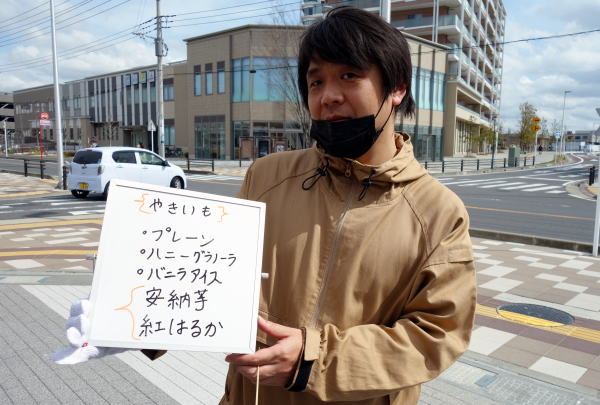 {やきいも}
・プレーン
・ハニーグラノーラ
・バニラアイス
安納芋
紅はるか